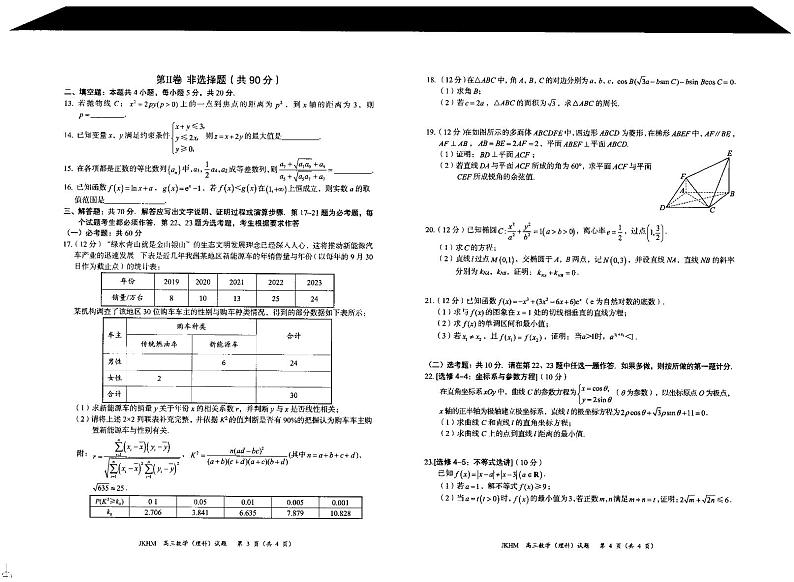 第II卷 非选择题（共90分）
二、填空题：本题共4小题，每小题5分，共20分.
13. 若抛物线 C：x²=2py(p>0)上的一点到焦点的距离为 p²，到 x 轴的距离为 3，则
p=________.
14. 已知变量 x、y 满足约束条件{x+y≤3, y≤2x, y≥0, 则 z=x+2y 的最大值是________.
15. 在各项都是正数的等比数列{aₙ}中，a₃，½a₄，a₂成等差数列，则 (a₇+√(a₁a₉)+a₄)/(a₃+√(a₂a₃)+a₂)
16. 已知函数 f(x)=ln x+a，g(x)=eˣ-1，若 f(x)<g(x)在(1,+∞)上恒成立，则实数 a 的取
值范围是________.
三、解答题：共70分. 解答应写出文字说明、证明过程或演算步骤. 第17-21题为必考题，每
个试题考生都必须作答. 第22、23题为选考题，考生根据要求作答
（一）必考题：共60分
17.（12分）“绿水青山就是金山银山”的生态文明发展理念已经深入人心，这将推动新能源汽
车产业的迅速发展. 下表是近几年我国某地区新能源车的年销售量与年份（以每年的9月30
日作为截止点）的统计表：
年份 2019 2020 2021 2022 2023
销量/万台 8 10 13 25 24
某机构调查了该地区30位购车车主的性别与购车种类情况，得到的部分数据如下表所示：
车主 购车种类 合计
传统燃油车 新能源车
男性 6 24
女性 2
合计 30
（1）求新能源车的销量 y 关于年份 x 的相关系数 r，并判断 y 与 x 是否线性相关；
（2）请将上述2×2列联表补充完整，并依据K²的值判断是否有90%的把握认为购车车主购
置新能源车与性别有关.
附：r=∑(xᵢ-x̄)(yᵢ-ȳ)/√(∑(xᵢ-x̄)²∑(yᵢ-ȳ)²)，K²=n(ad-bc)²/((a+b)(c+d)(a+c)(b+d))(其中 n=a+b+c+d)，
√635≈25.
P(K²≥k₀) 0.1 0.05 0.01 0.005 0.001
k₀ 2.706 3.841 6.635 7.879 10.828
JKHM 高三数学（理科）试题 第 3 页（共 4 页）
18.（12分）在△ABC中，角 A、B、C 的对边分别为 a、b、c，cos B(√3a-bsin C)-bsin Bcos C=0.
（1）求角 B；
（2）若 c=2a，△ABC 的面积为√3，求△ABC 的周长.
19.（12分）在如图所示的多面体 ABCDFE 中，四边形 ABCD 为菱形，在梯形 ABEF 中，AF∥BE，
AF⊥AB，AB=BE=2AF=2，平面 ABEF⊥平面 ABCD.
（1）证明：BD⊥平面ACF；
（2）若直线 DA 与平面 ACF 所成的角为60°，求平面 ACF 与平面
CEF 所成锐角的余弦值.
E
F
A
B
D
C
20.（12分）已知椭圆C：x²/a²+y²/b²=1(a>b>0)，离心率 e=1/2，过点(1,3/2).
（1）求 C 的方程；
（2）直线 l 过点 M(0,1)，交椭圆于 A、B 两点，记 N(0,3)，并设直线 NA、直线 NB 的斜率
分别为 kNA、kNB，证明：kNA+kNB=0.
21.（12分）已知函数 f(x)=-x³+(3x²-6x+6)eˣ（e 为自然对数的底数）.
（1）求与 f(x)的图象在 x=1 处的切线相垂直的直线方程；
（2）求 f(x)的单调区间和最小值；
（3）若 x₁≠x₂，且 f(x₁)=f(x₂)，证明：当a>1时，a^(x₁+x₂)<1.
（二）选考题：共10分. 请在第22、23题中任选一题作答. 如果多做，则按所做的第一题计分.
22.[选修 4-4：坐标系与参数方程]（10分）
在直角坐标系 xOy 中，曲线 C 的参数方程为{x=cosθ, y=2sinθ（θ 为参数），以坐标原点 O 为极点，
x 轴的正半轴为极轴建立极坐标系，直线 l 的极坐标方程为2ρcosθ+√3ρsinθ+11=0.
（1）求曲线 C 和直线 l 的直角坐标方程；
（2）求曲线 C 上的点到直线 l 距离的最小值.
23.[选修 4-5：不等式选讲]（10分）
已知 f(x)=|x-a|+|x-3|(a∈R).
（1）若 a=1，解不等式 f(x)≥9；
（2）当 a=t(t>0)时，f(x)的最小值为3，若正数 m,n 满足 m+n=t，证明：2√m+√2n≤6.
JKHM 高三数学（理科）试题 第 4 页（共 4 页）